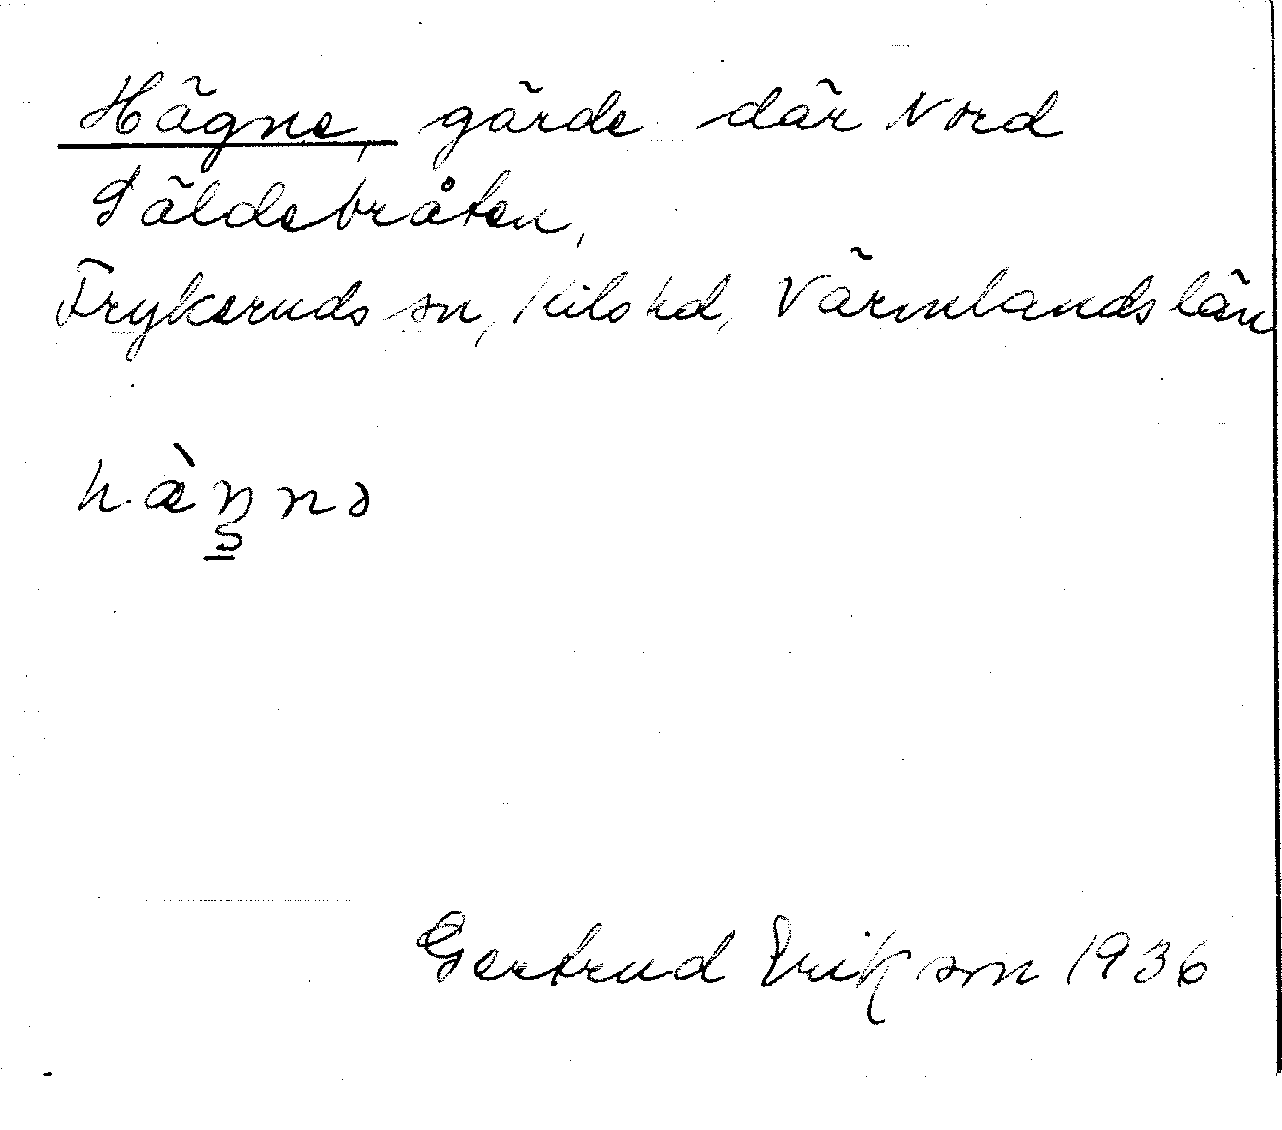 Hägne, gärde där Nord
Säldebråten,
Frykeruds sn, Kils hd, Värmlands län
hæ̀n̠nə
Gertrud Erikson 1936